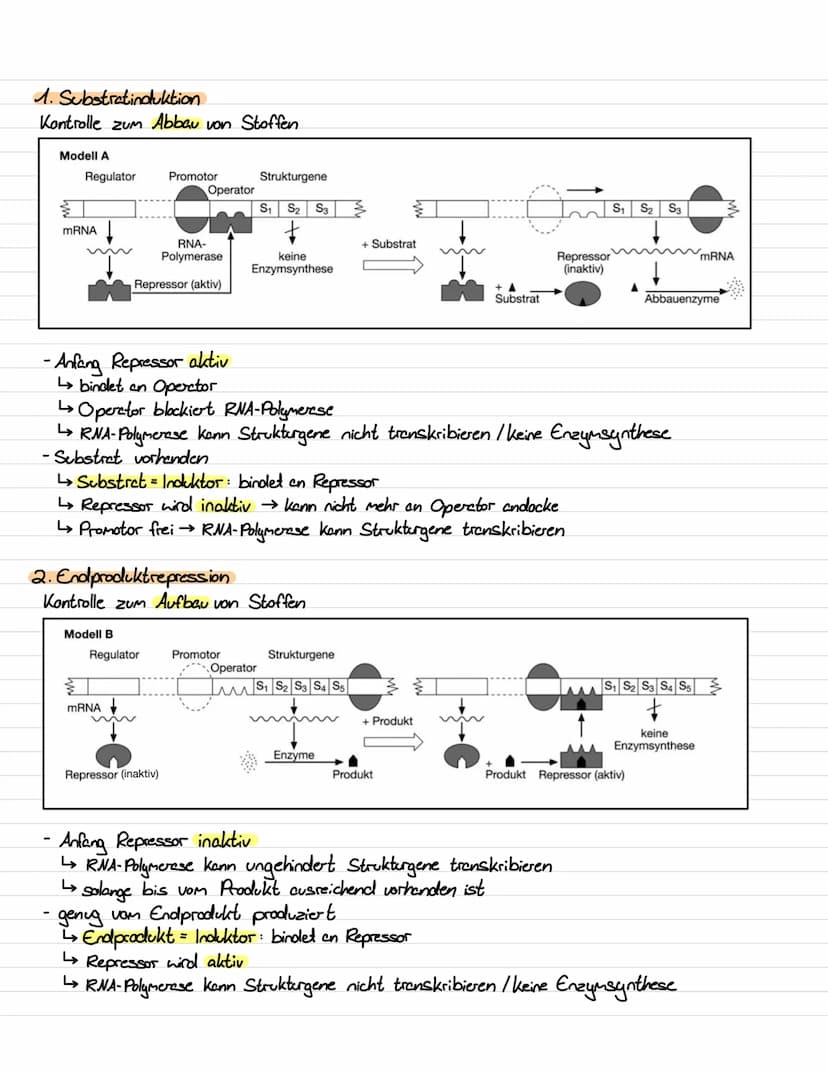 1. Substratinduktion
Kontrolle zum Abbau von Stoffen
Modell A
Regulator Promotor Strukturgene
Operator
S1 S2 S3 S1 S2 S3
mRNA
RNA-
Polymerase
keine
Enzymsynthese
+ Substrat
Repressor
(inaktiv)
mRNA
Repressor (aktiv)
+
Substrat
Abbauenzyme
- Anfang Repressor aktiv
↳ bindet an Operator
↳ Operator blockiert RNA-Polymerase
↳ RNA-Polymerase kann Strukturgene nicht transkribieren / keine Enzymsynthese
- Substrat vorhanden
↳ Substrat = Induktor: bindet an Repressor
↳ Repressor wird inaktiv → kann nicht mehr an Operator andocke
↳ Promotor frei → RNA-Polymerase kann Strukturgene transkribieren
2. Endproduktrepression
Kontrolle zum Aufbau von Stoffen
Modell B
Regulator Promotor Strukturgene
Operator
S1 S2 S3 S4 S5 S1 S2 S3 S4 S5
mRNA
+ Produkt
keine
Enzymsynthese
Enzyme
Repressor (inaktiv)
Produkt
+
Produkt Repressor (aktiv)
- Anfang Repressor inaktiv
↳ RNA-Polymerase kann ungehindert Strukturgene transkribieren
↳ solange bis vom Produkt ausreichend vorhanden ist
- genug vom Endprodukt produziert
↳ Endprodukt = Induktor: bindet an Repressor
↳ Repressor wird aktiv
↳ RNA-Polymerase kann Strukturgene nicht transkribieren / keine Enzymsynthese